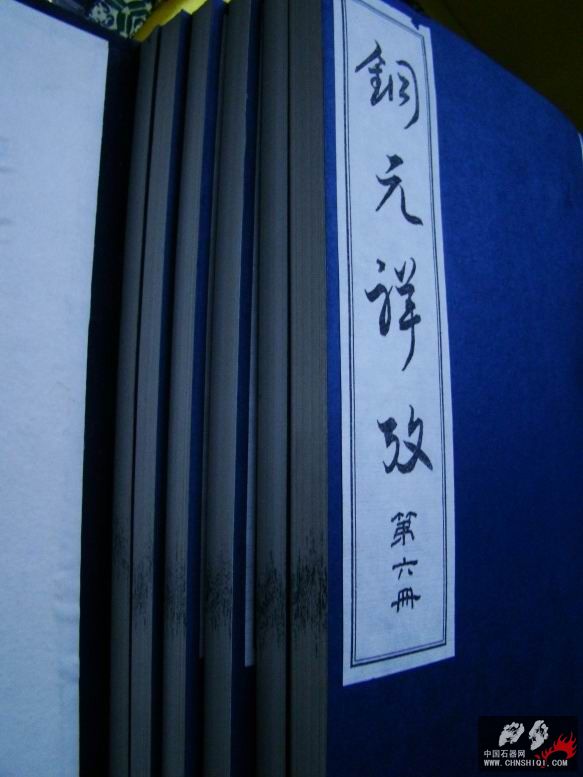 銅元詳攷
第六冊
中国石器网
WWW.CHNSHIQI.COM